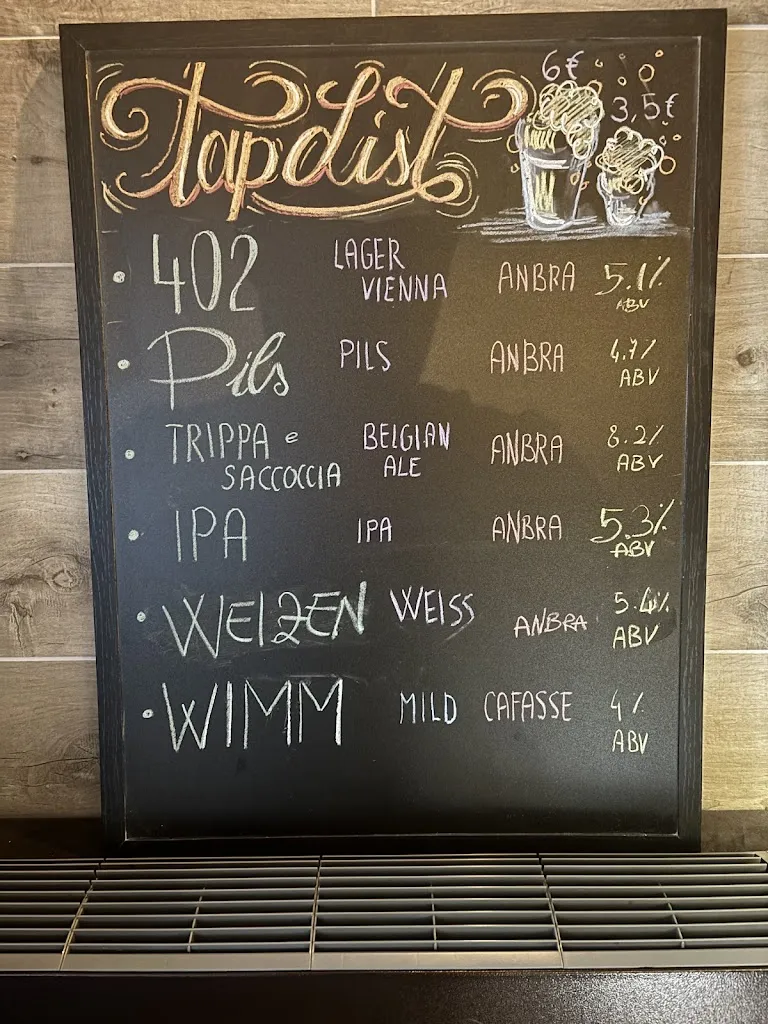 Tap List 6€ 3,5€
402 LAGER VIENNA ANBRA 5.1% ABV
Pils PILS ANBRA 4.7% ABV
TRIPPA e SACCOCCIA BELGIAN ALE ANBRA 8.2% ABV
IPA IPA ANBRA 5.3% ABV
WEIZEN WEISS ANBRA 5.4% ABV
WIMM MILD CAFASSE 4% ABV